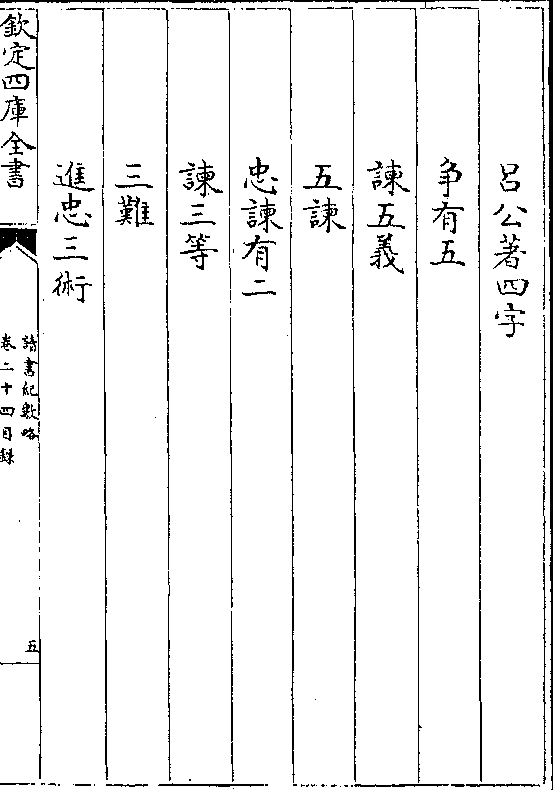 呂公著四字
爭有五
諫五義
五諫
忠諫有二
諫三等
三難
進忠三術
欽定四庫全書
讀書紀數略
卷二十四目錄
五